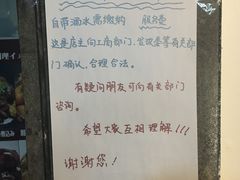 自带酒水需缴纳 服务费
这是店主向工商部门、食药委等有关部
门确认,合理合法。
有疑问朋友可向有关部门
咨询。
希望大家互相理解!!!
谢谢您!